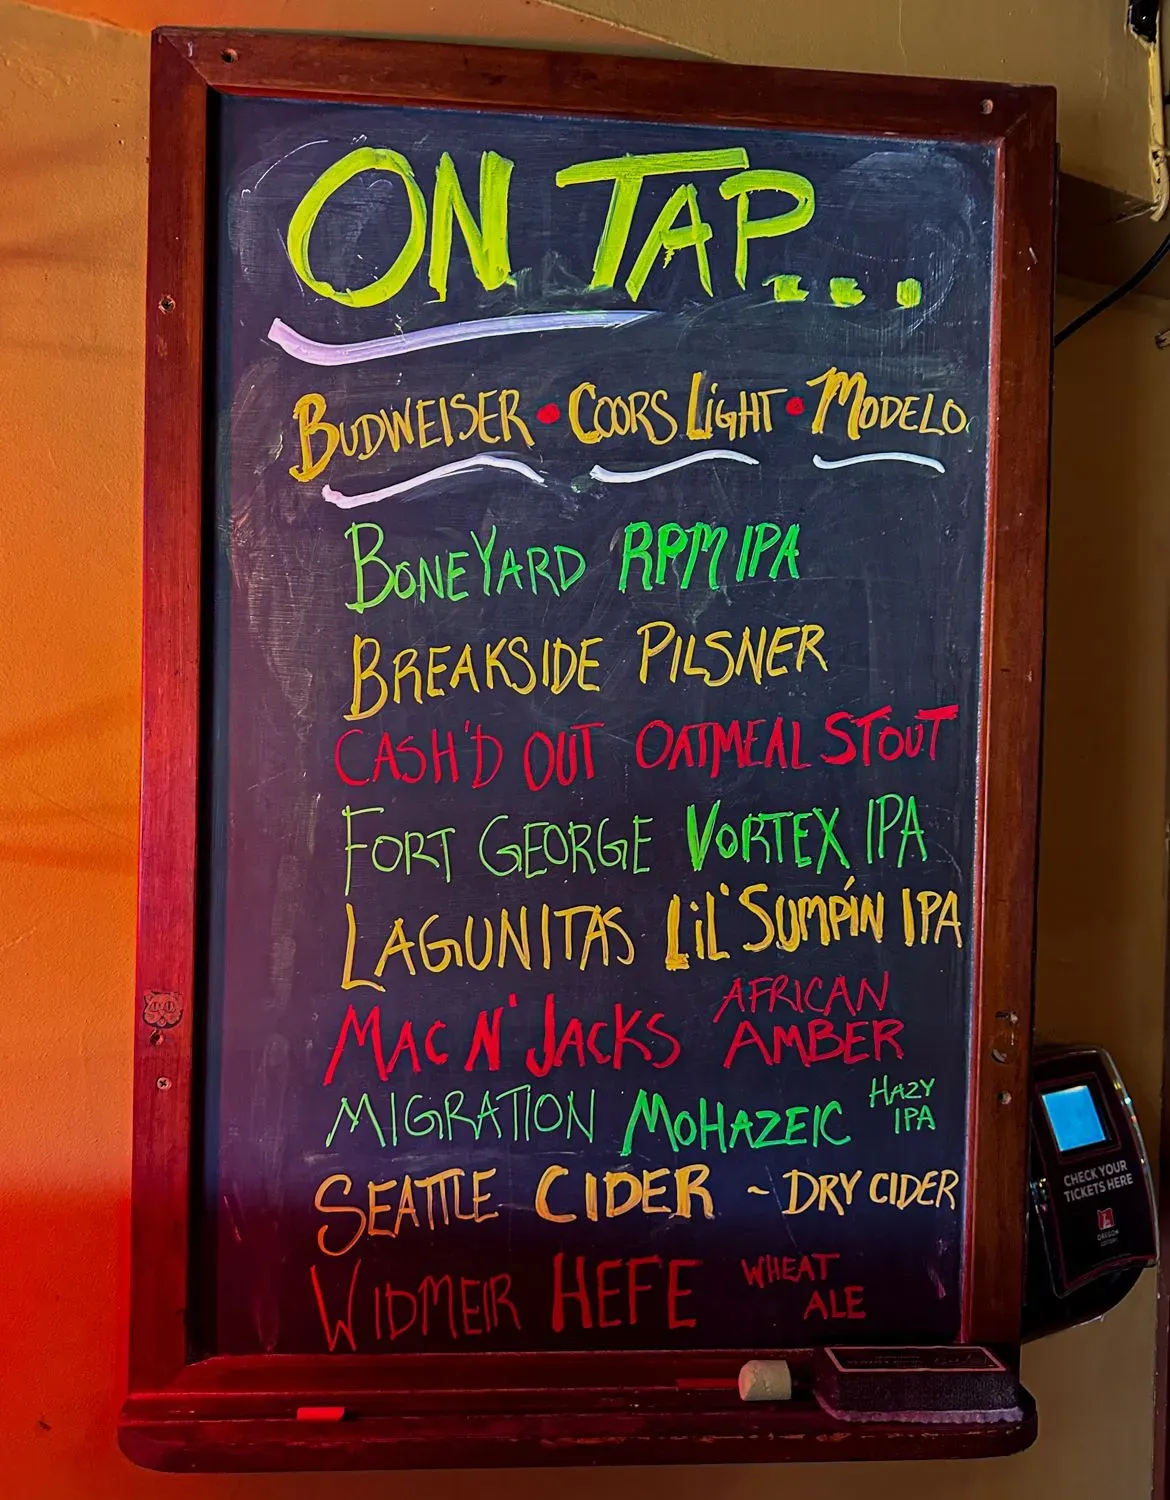 ON TAP...
BUDWEISER • COORS LIGHT • MODELO
BONEYARD RPM IPA
BREAKSIDE PILSNER
CASH'D OUT OATMEAL STOUT
FORT GEORGE VORTEX IPA
LAGUNITAS LIL' SUMPIN IPA
MAC N' JACKS AFRICAN AMBER
MIGRATION MOHAZEIC HAZY IPA
SEATTLE CIDER ~ DRY CIDER
WIDMEIR HEFE WHEAT ALE
CHECK YOUR
TICKETS HERE
OREGON
LOTTERY